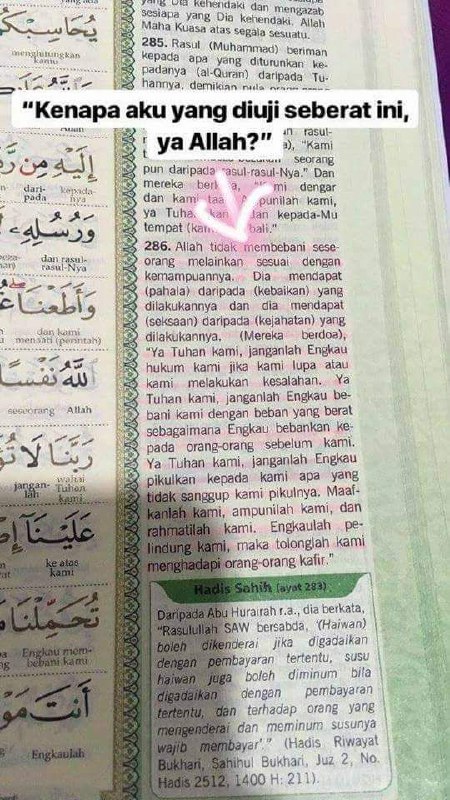 yang Dia kehendaki dan mengazab
sesiapa yang Dia kehendaki. Allah
Maha Kuasa atas segala sesuatu.
285. Rasul (Muhammad) beriman
kepada apa yang diturunkan ke-
padanya (al-Quran) daripada Tu-
hannya, demikian pula orang
“Kenapa aku yang diuji seberat ini,
ya Allah?”
rasul-
"Kami
seorang
pun daripada rasul-rasul-Nya." Dan
mereka dengar
dan kami kami,
ya dan kepada-Mu
tempat
286. Allah tidak membebani sese-
orang melainkan sesuai dengan
kemampuannya. Dia mendapat
(pahala) daripada (kebaikan) yang
dilakukannya dan dia mendapat
(seksaan) daripada (kejahatan) yang
dilakukannya. (Mereka berdoa),
"Ya Tuhan kami, janganlah Engkau
hukum kami jika kami lupa atau
kami melakukan kesalahan. Ya
Tuhan kami, janganlah Engkau be-
bani kami dengan beban yang berat
sebagaimana Engkau bebankan ke-
pada orang-orang sebelum kami.
Ya Tuhan kami, janganlah Engkau
pikulkan kepada kami apa yang
tidak sanggup kami pikulnya. Maaf-
kanlah kami, ampunilah kami, dan
rahmatilah kami. Engkaulah pe-
lindung kami, maka tolonglah kami
menghadapi orang-orang kafir."
Hadis Sahih (ayat 283)
Daripada Abu Hurairah r.a., dia berkata,
"Rasulullah SAW bersabda, '(Haiwan)
boleh dikenderai jika digadaikan
dengan pembayaran tertentu, susu
haiwan juga boleh diminum bila
digadaikan dengan pembayaran
tertentu, dan terhadap orang yang
mengenderai dan meminum susunya
wajib membayar'." (Hadis Riwayat
Bukhari, Sahihul Bukhari, Juz 2, No.
Hadis 2512, 1400 H: 211).
menghitungkan
kamu
إِلَيْهِ مِن
dari-
pada
kepada-
nya
وَرُسُلِهِ
dan rasul-
rasul-Nya
وَأَطَعْنَا
dan kami
mentaati (perintah)
اللَّهُ نَفْسًا
seseorang Allah
رَبَّنَا لَا
jangan-
lah
wahai
Tuhan
kami
عَلَيْنَا
ke atas
kami
تُحَمِّلْنَا
Engkau mem-
bebani kami
أَنتَ
Engkaulah